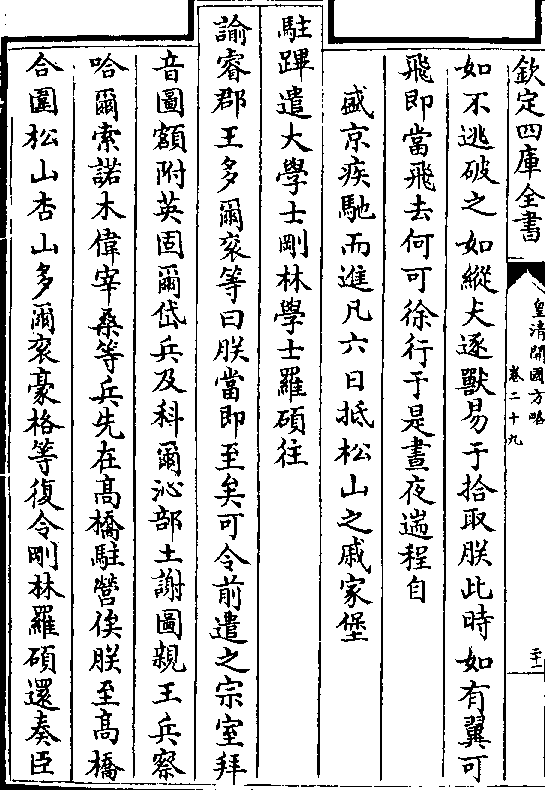 欽定四庫全書
皇清開國方略
卷二十九
如不逃破之如縱犬逐獸易于拾取朕此時如有翼可
飛即當飛去何可徐行于是晝夜遄程自
盛京疾馳而進凡六日抵松山之戚家堡
駐蹕遣大學士剛林學士羅碩往
諭睿郡王多爾袞等曰朕當即至矣可令前遣之宗室拜
音圖額附英固爾岱兵及科爾沁部土謝圖親王兵察
哈爾索諾木偉宰桑等兵先在高橋駐營俟朕至高橋
合圍松山杏山多爾袞豪格等復令剛林羅碩還奏臣